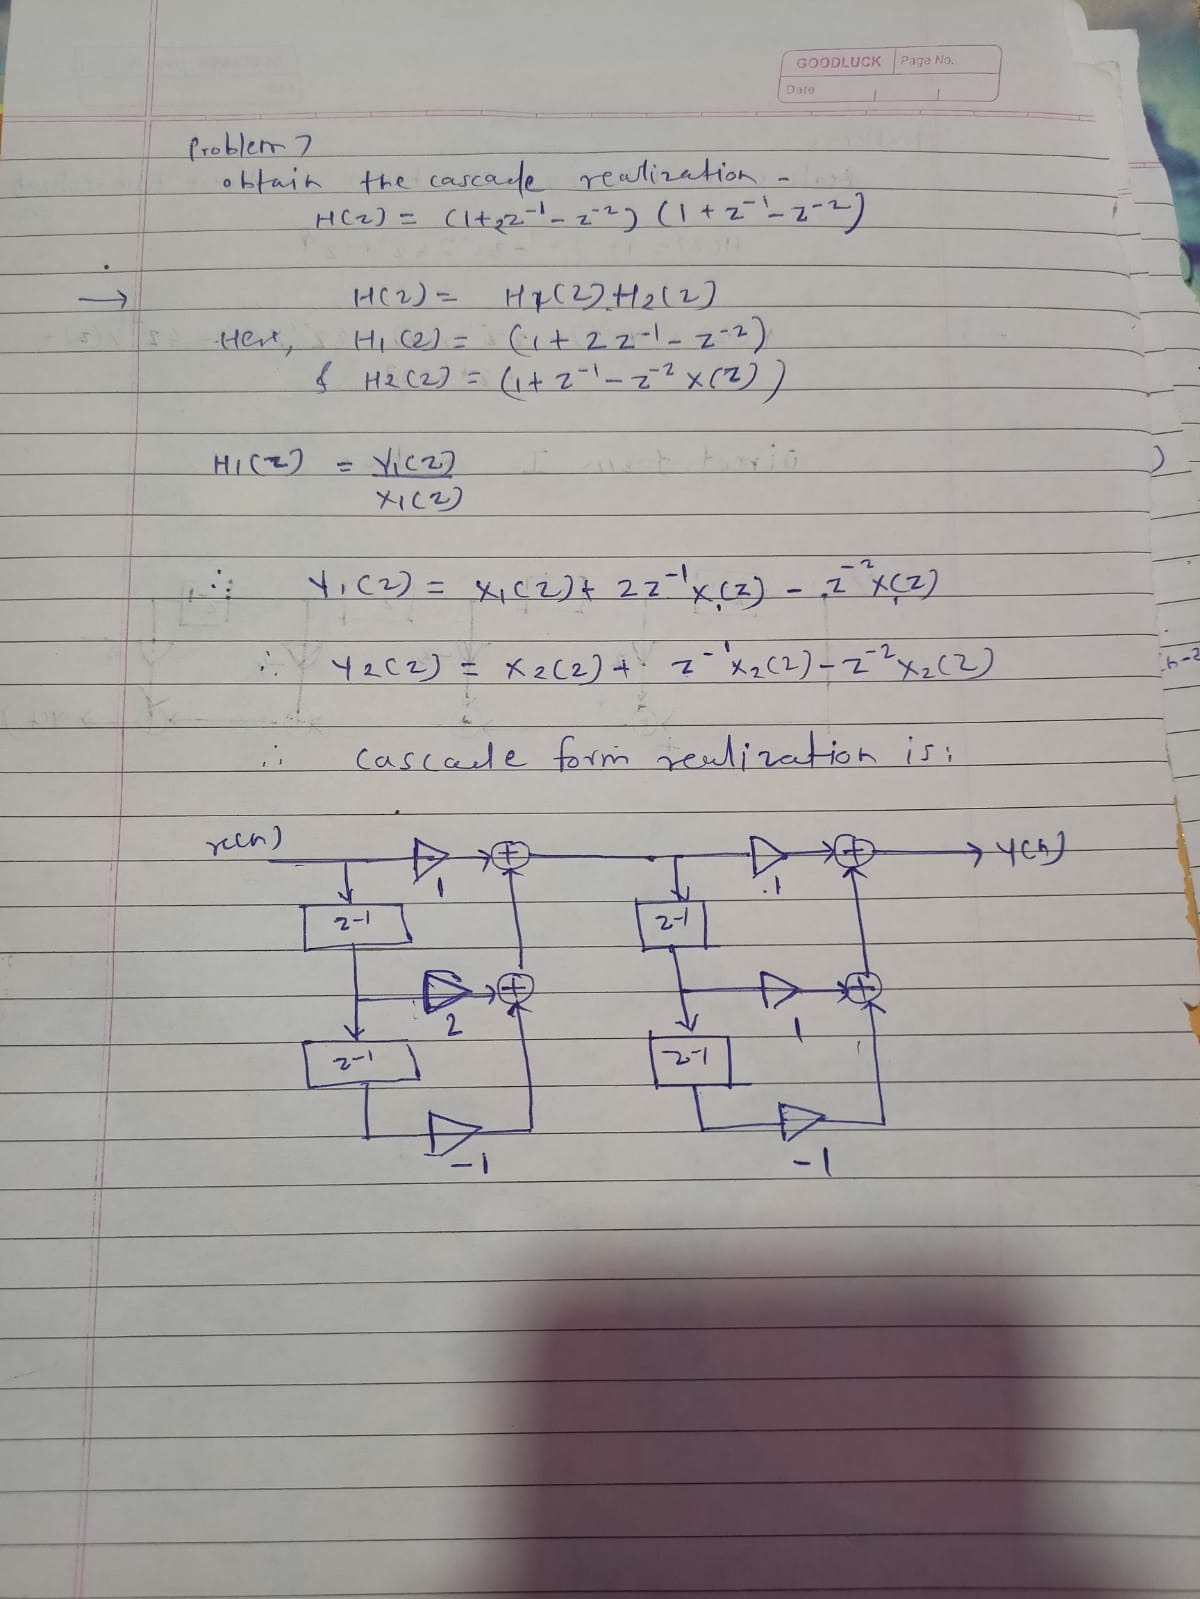 GOODLUCK Page No.
Date
Problem 7
obtain the cascade realization -
H(z) = (1+2z⁻¹ - z⁻²) (1 + z⁻¹ - z⁻²)
→ H(z) = H1(z).H2(z)
Here, H1(z) = (1 + 2z⁻¹ - z⁻²)
& H2(z) = (1 + z⁻¹ - z⁻² x(z))
H1(z) = Y1(z)
X1(z)
∴ Y1(z) = X1(z) + 2z⁻¹X1(z) - z⁻²X1(z)
∴ Y2(z) = X2(z) + z⁻¹X2(z) - z⁻²X2(z)
∴ cascade form realization is:
x(n) 1 + 1 + → y(n)
z-1 z-1
2 + 1 +
z-1 z-1
-1 -1